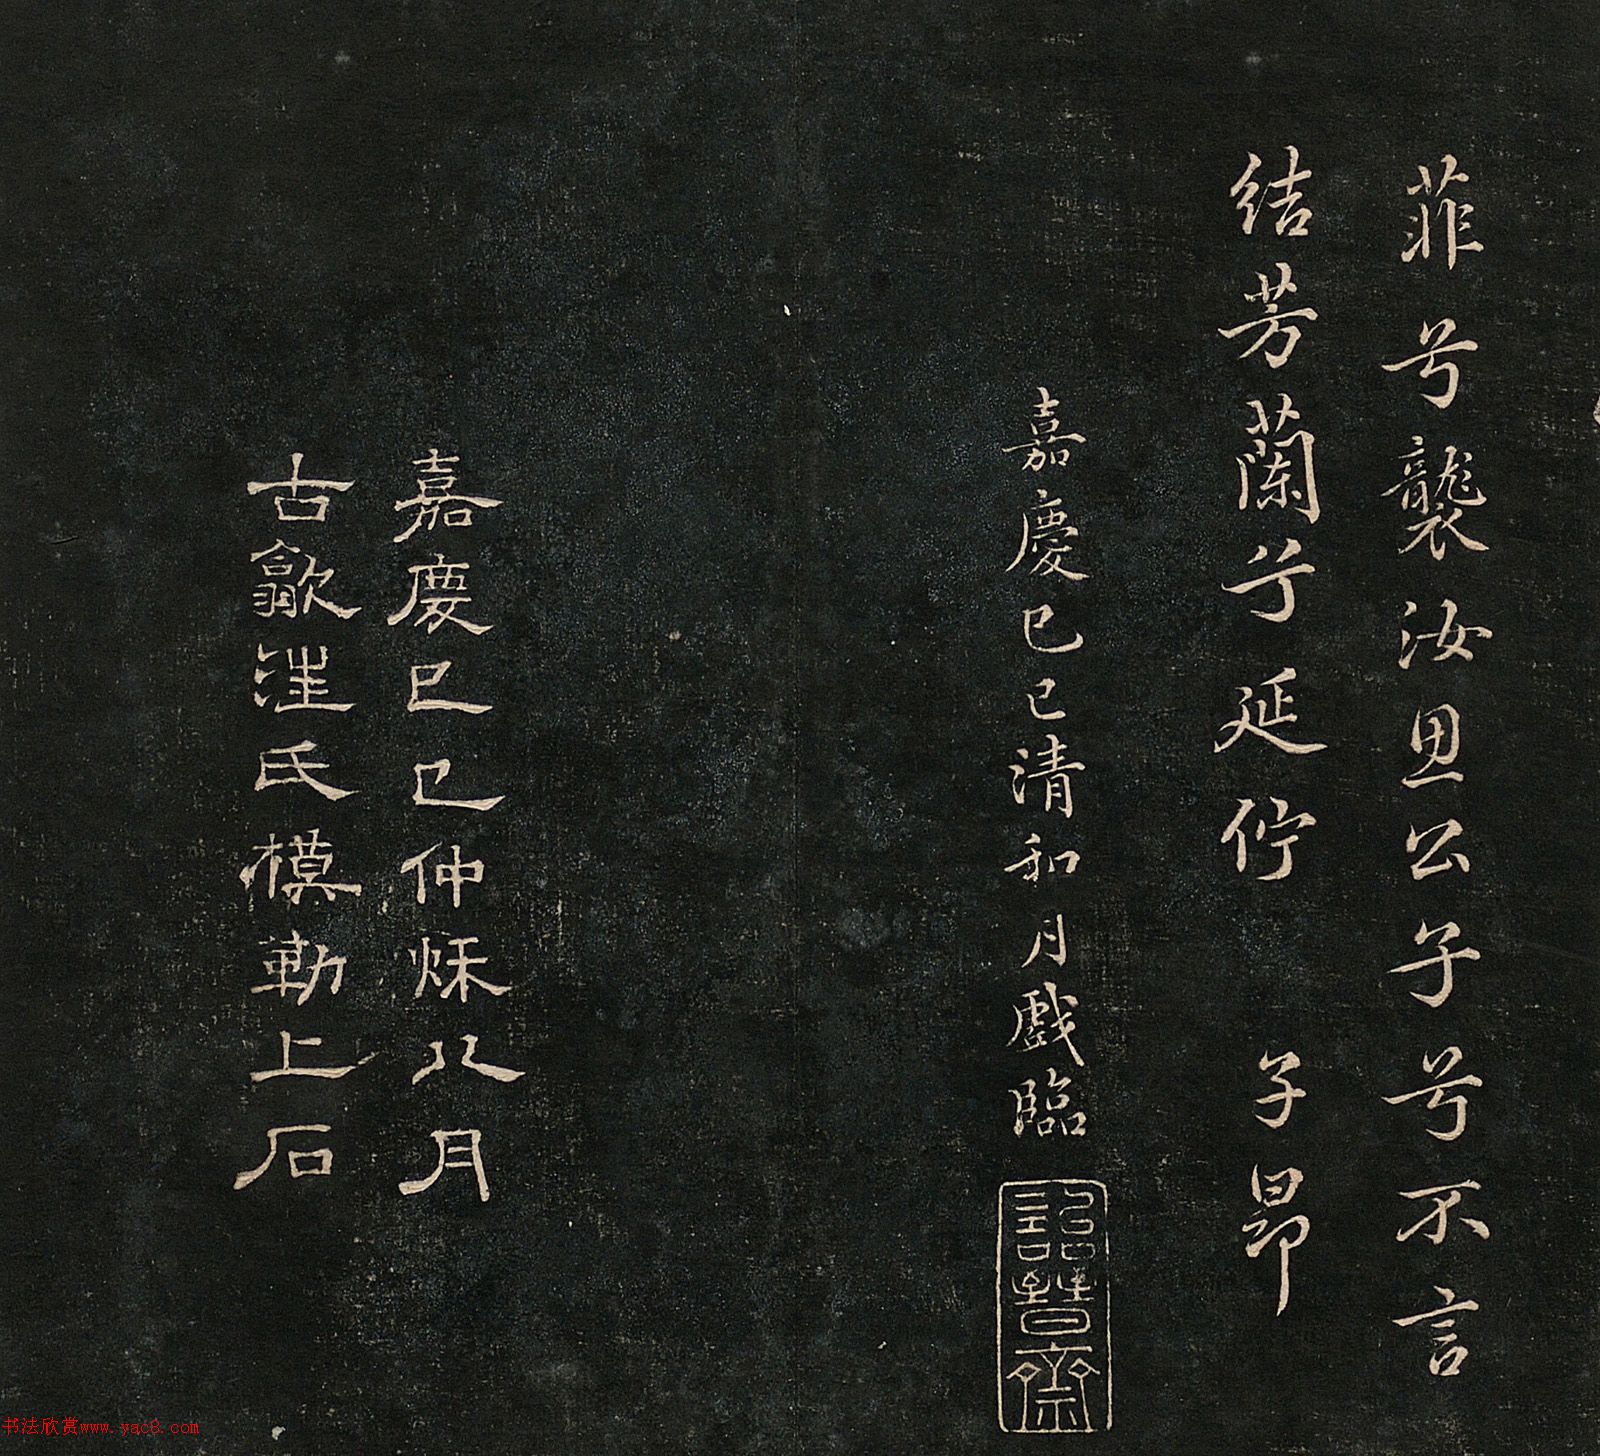 菲兮襲汝思公子兮不言
結芳蘭兮延佇 子昂
嘉慶己巳清和月戲臨
詒晉齋
嘉慶己巳仲秌八月
古歙汪氏模勒上石
书法欣赏www.yac8.com